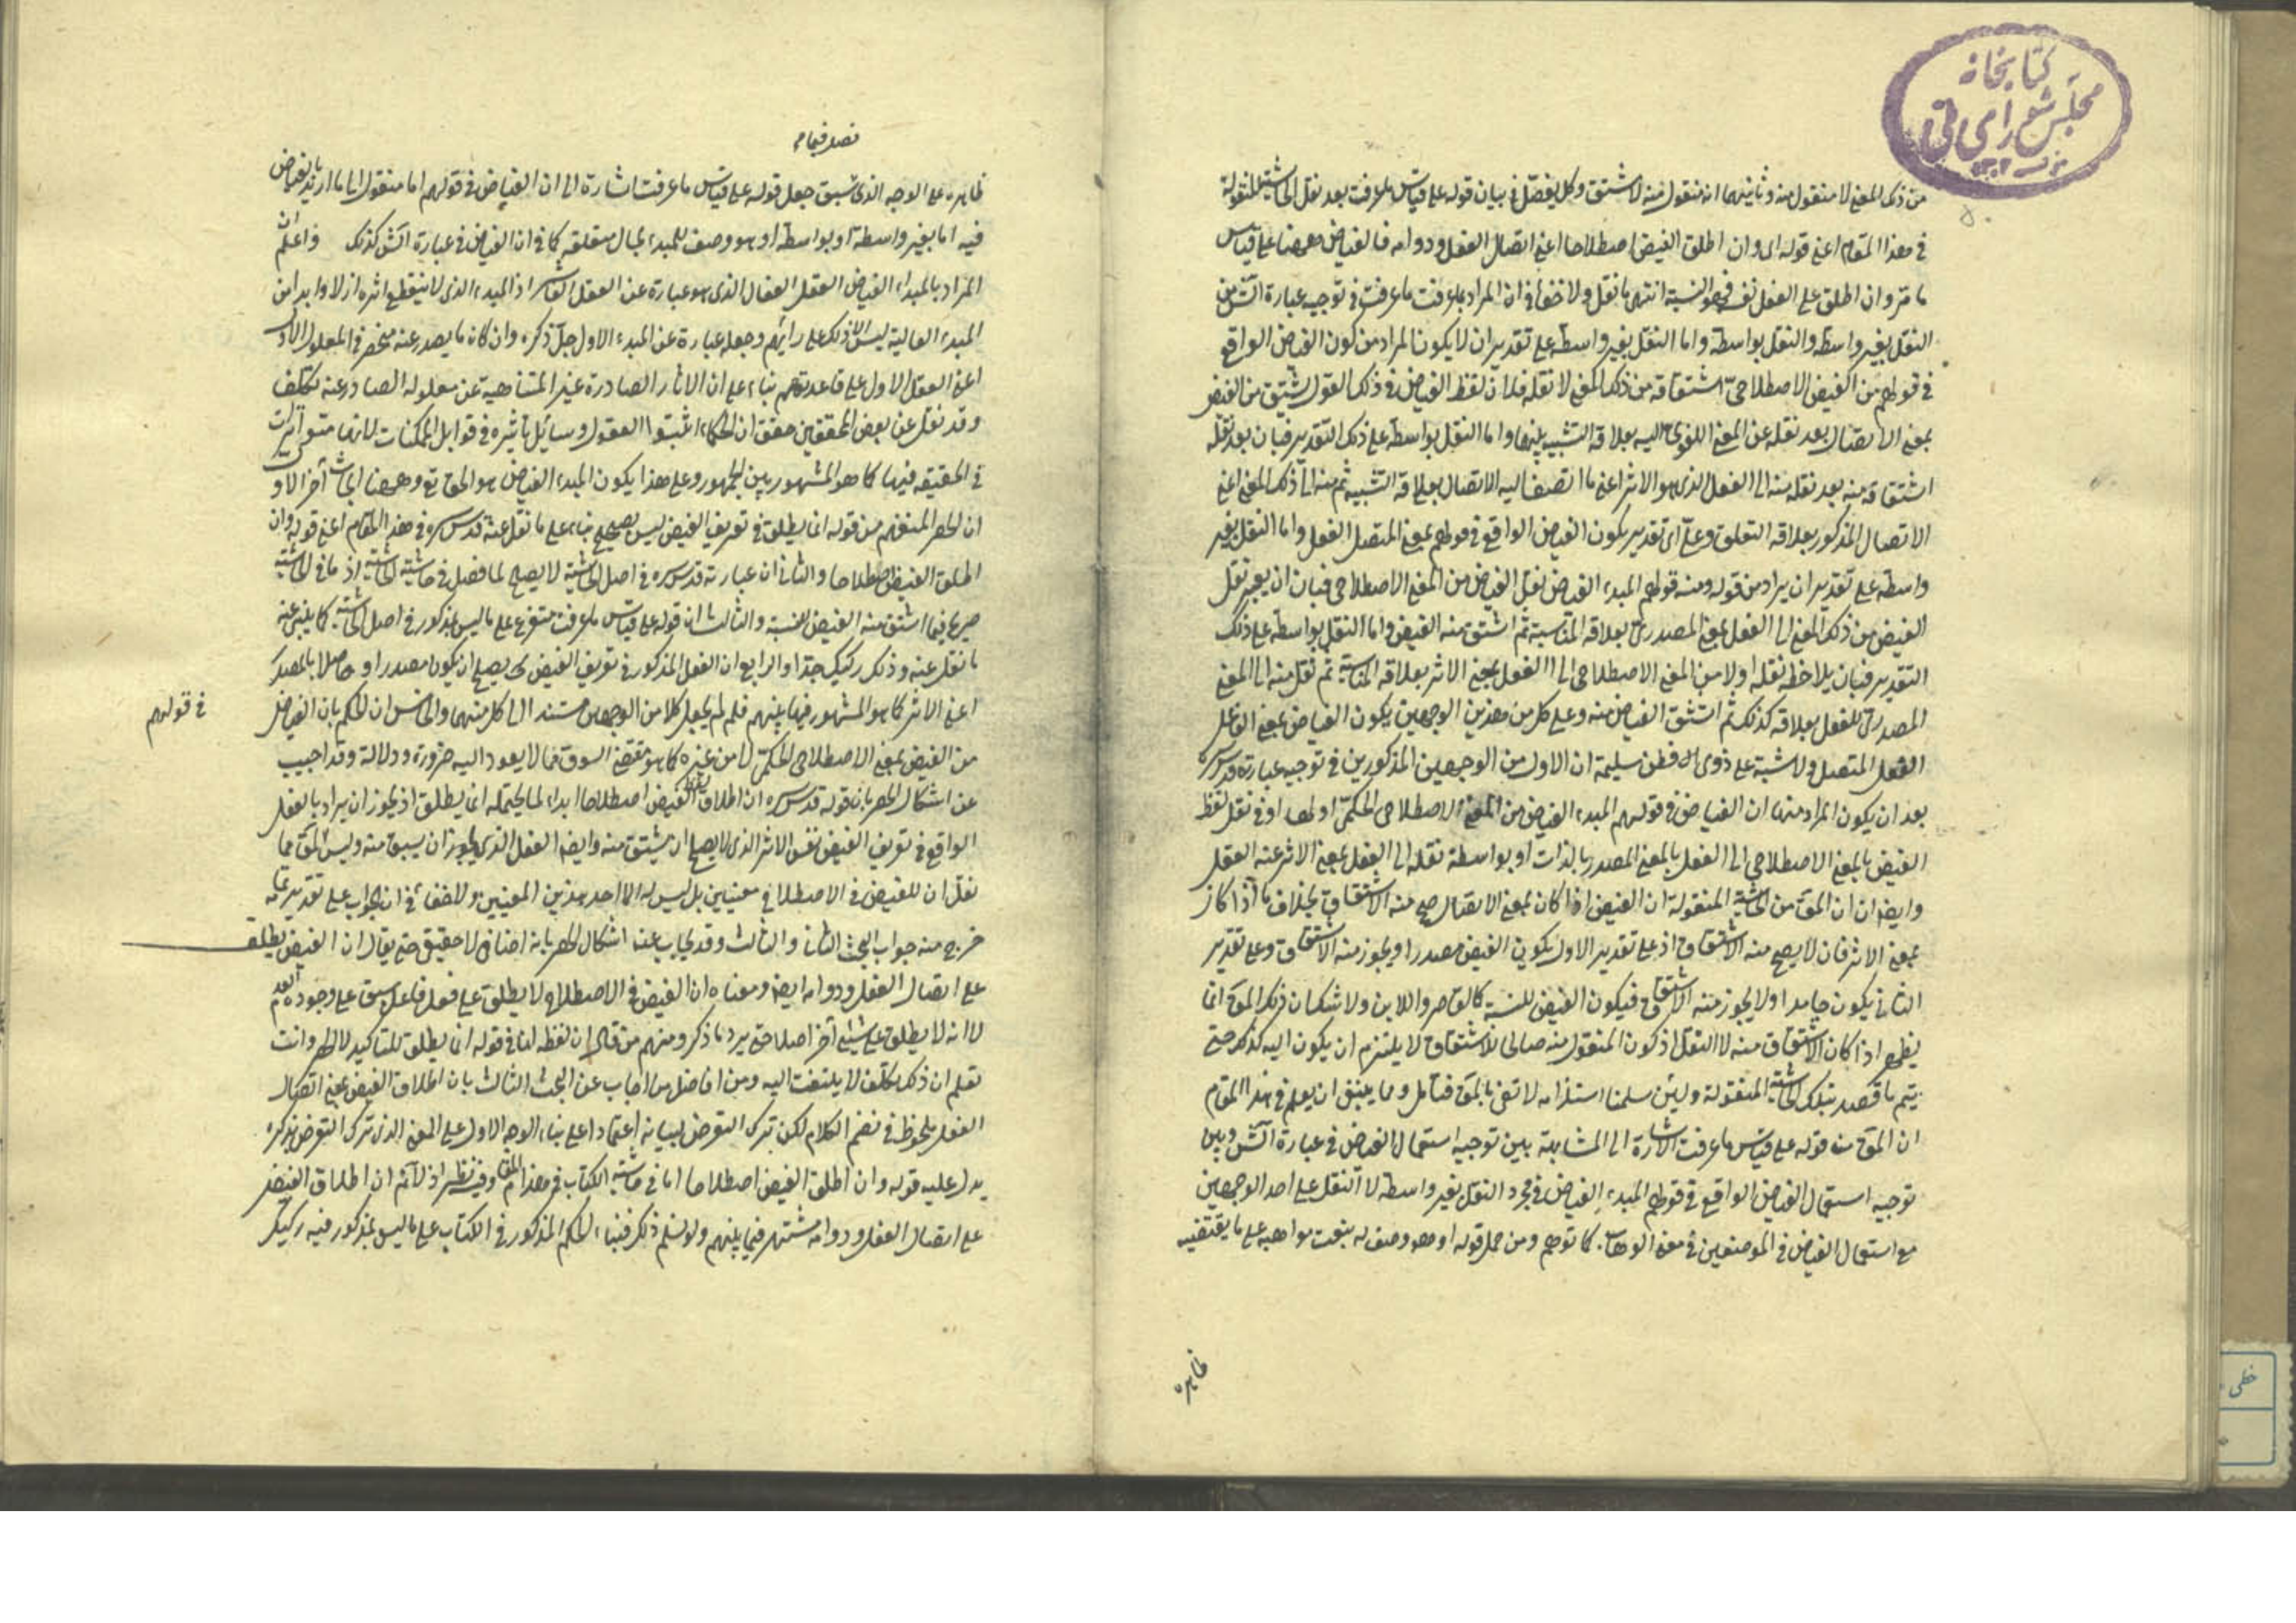 كتابخانه
مجلس شورای ملی
من ذلك المعنى لا منقول منه وثانيهما انه منقول منه لا مشتق وكل يفصل في بيان قوله على قياس ما عرفت بعد نقل الحاشية المنقولة
في هذا المقام اعني قوله اى وان اطلق الفيض اصطلاحا اعنى اتصال الفعل ودوامه فالفياض ههنا على قياس
ما مر وان اطلق على الفعل نفسه فهو النسبة انتهى ما نقل ولا خفاء في ان المراد بما عرفت ما عرفت في توجيه عبارة الش من
النقل بغير واسطة والنقل بواسطة واما النقل بغير واسطة على تقدير ان لا يكون المراد من كون الفياض الواقع
في قولهم من الفيض الاصطلاحى اشتقاقه من ذلك المعنى لا نقله فلان لفظ الفياض في ذلك القول مشتق من الفيض
بمعنى الاتصال بعد نقله عن المعنى اللغوى اليه بعلاقة التشبيه بينهما واما النقل بواسطة على ذلك التقدير فبان بعد نقله
اشتقاقه منه بعد نقله منه الى الفعل الذى هو الاثر اعنى ما اتصف اليه الاتصال بعلاقة التشبيه ثم منه الى ذلك المعنى اعنى
الاتصال المذكور بعلاقة التعلق وعلى اى تقدير يكون الفياض الواقع في قولهم بمعنى المتصل الفعل واما النقل بغير
واسطة على تقدير ان يراد من قوله ومنه قولهم المبدء الفياض نقل الفياض من المعنى الاصطلاحى فبان ان يعتبر نقل
الفيض من ذلك المعنى الى الفعل بمعنى المصدرى بعلاقة المناسبة ثم اشتق منه الفيض واما النقل بواسطة على ذلك
التقدير فبان يلاحظ نقله اولا من المعنى الاصطلاحى الى الفعل بمعنى الاثر بعلاقة المناسبة ثم نقل منه الى المعنى
المصدرى للفعل بعلاقة كذلك ثم اشتق الفياض منه وعلى كل من هذين الوجهين يكون الفياض بمعنى الفاعل
الفعل المتصل ولا شبهة على ذوى فطن سليمة ان الاول من الوجهين المذكورين في توجيه عبارته قدس سره
بعد ان يكون المراد منها ان الفياض في قولهم المبدء الفياض من المعنى الاصطلاحى الحكمى او لهما او في نقل لفظ
الفيض بالمعنى الاصطلاحى الى الفعل بالمعنى المصدر بالذات او بواسطة نقله الى الفعل بمعنى الاثر عند العقل
وايضا ان المق من الحاشية المنقولة ان الفيض اذا كان بمعنى الاتصال صح منه الاشتقاق بخلاف ما اذا كان
بمعنى الاثر فان لا يصح منه الاشتقاق اذ على تقدير الاول يكون الفيض مصدرا ويجوز منه الاشتقاق وعلى تقدير
الثاني يكون جامدا ولا يجوز منه الاشتقاق فيكون الفيض للنسبة كالتامر واللابن ولا شك ان ذلك المق انما
يظهر اذا كان الاشتقاق منه لا النقل اذ كون المنقول منه صالحا للاشتقاق لا يلتزم ان يكون اليه كذلك حتى
يتم ما قصد بتلك الحاشية المنقولة ولئن سلمنا استلزامه لا تفى بالمق فتامل ومما ينبغى ان يعلم في هذا المقام
ان المق من قوله على قياس ما عرفت الاشارة الى المشابهة بين توجيه استعمال الفياض في عبارة الش وبين
توجيه استعمال الفياض الواقع في قولهم المبدء الفياض في مجرد النقل بغير واسطة لا النقل على احد الوجهين
مع استعمال الفياض في الموضعين في معنى الوهاب كما توهم ومن حمل قوله او هو وصف له بنعت مواهبه على ما يقتضيه
ظاهره
ظاهره على الوجه الذى سبق جعل قوله على قياس ما عرفت اشارة الى ان الفياض في قولهم اما منقول الى ما اريد بالفياض
فيه اما بغير واسطة او بواسطة او هو وصف للمبدء بحال متعلقه كما في ان الفياض في عبارة الش كذلك واعلم ان
المراد بالمبدء الفياض العقل الفعال الذى هو عبارة عن العقل العاشر اذ المبدء الذى لا ينقطع اثره ازلا وابدا من
المبدء العالية ليس الا ذلك على رايهم وجعله عبارة عن المبدء الاول جل ذكره وان كان ما يصدر عنه منحصر في المعلول الاول
اعنى العقل الاول على قاعدتهم بناء على ان الاثار الصادرة غير المتناهية عن معلوله الصادر عنه تكلف
وقد نقل عن بعض المحققين حقق ان الحكماء اثبتوا العقول وسائل تاثيره في قوابل الممكنات لا انها مؤثرات
في الحقيقة فيها كما هو المشهور بين الجمهور وعلى هذا يكون المبدء الفياض هو الحق تع وههنا ابحاث آخر الاول
ان الحصر المنفهم من قوله انما يطلق في تعريف الفيض ليس بصحيح بناء على ما نقل عنه قدس سره في هذا المقام اعنى قوله وان
اطلق الفيض اصطلاحا والثاني ان عبارته قدس سره في اصل الحاشية لا يصلح لما فصل في حاشية الحاشية اذ ما في الحاشية
صريح فيما اشتق منه الفيض للنسبة والثالث ان قوله على قياس ما عرفت متفرع على ما ليس بمذكور في اصل الحاشية كما ينبئ عنه
ما نقل عنه وذلك ركيك جدا والرابع ان الفعل المذكور في تعريف الفيض كما يصلح ان يكون مصدرا او حاصلا بالمصدر
اعنى الاثر كما هو المشهور فيما بينهم فلم لم يجعل كلا من الوجهين مستندا الى كل منهما والخامس ان الحكم بان الفياض
في قولهم
من الفيض بمعنى الاصطلاحى الحكمى لا من غيره كما هو مقتضى السوق مما لا يعود اليه ضرورة ودلالة وقد اجيب
عن اشكال الحصر بان قوله قدس سره ان اطلاق لفظ الفيض اصطلاحا ابداء لما يحتمله انما يطلق اذ يجوز ان يراد بالفعل
الواقع في تعريف الفيض نفس الاثر الذى لا يصلح ان يشتق منه وايضا الفعل الذى يجوز ان يسبق منه وليس المق مما
نقل ان للفيض في الاصطلاح معنيين بل ليس له الا احد هذين المعنيين ولا خفاء في ان الجواب على تقدير تمامه
خرج منه جواب البحث الثانى والثالث وقد يجاب عن اشكال الحصر بانه اضافى لا حقيقى حتى يقال ان الفيض يطلق
على اتصال الفعل ودوامه ايضا ومعناه ان الفيض في الاصطلاح لا يطلق على فعل فاعل سبق على وجوده العدم
لا انه لا يطلق على شئ آخر اصلا حتى يرد ما ذكر ومنهم من قال ان لفظ انما في قوله انما يطلق للتاكيد لا للحصر وانت
تعلم ان ذلك تكلف لا يلتفت اليه ومن الافاضل من اجاب عن البحث الثالث بان اطلاق الفيض بمعنى اتصال
الفعل ملحوظ في نظم الكلام لكن ترك التعرض لبيانه اعتمادا على بناء الوجه الاول على المعنى الذى ترك التعرض بذكره
يدل عليه قوله وان اطلق الفيض اصطلاحا اما في حاشية الكتاب في هذا المقام وفيه نظر اذ لا نم ان اطلاق الفيض
على اتصال الفعل ودوامه مشتهر فيما بينهم ولو سلم ذلك فبناء الحكم المذكور في الكتاب على ما ليس بمذكور فيه ركيك
خطى